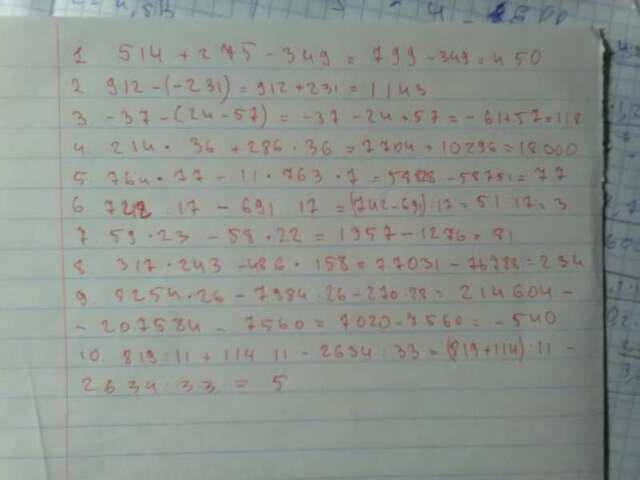 1. 514 + 275 - 349 = 799 - 349 = 450
2 912 - (-231) = 912 + 231 = 1143
3 -37 - (24 - 57) = -37 - 24 + 57 = -61 + 57 = 118
4. 214 · 36 + 286 · 36 = 7704 = 10296 = 18000
5. 764 · 77 - 11 · 763 · 7 = 58828 - 58751 = 77
6. 742 : 17 - 691 17 = (742 - 691) : 17 = 51 : 17 = 3
7. 59 · 23 - 58 · 22 = 1357 - 1276 = 81
8 317 · 243 - 486 · 158 = 77031 - 76788 = 234
9 8254 · 26 - 7984 · 26 - 270 · 28 = 214604 -
- 207584 - 7560 = 7020 - 7560 = - 540
10. 819 : 11 + 114 11 - 2634 : 33 = (819 + 114) : 11 -
2634 · 33 = 5